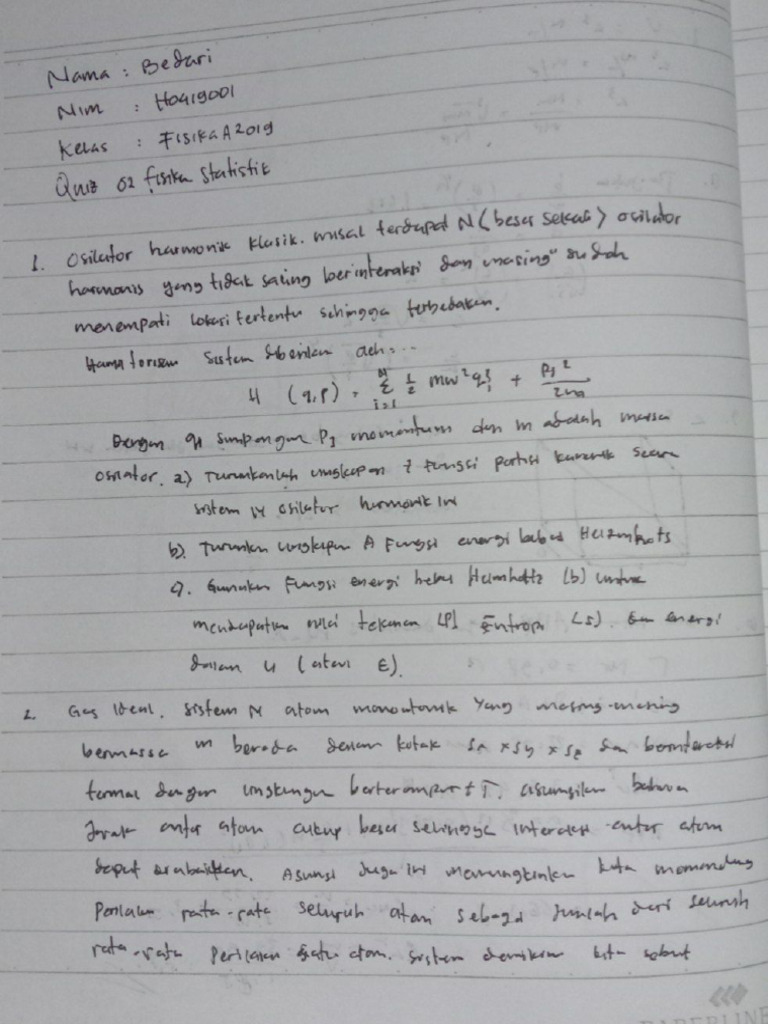 Nama : Bedari
Nim : H0419001
Kelas : Fisika A 2019
Quiz 02 fisika statistik
1. Osilator harmonik klasik. misal terdapat N (besar sekali) osilator
harmonis yang tidak saling berinteraksi dan masing" sudah
menempati lokasi tertentu sehingga terbedakan.
sistem diberikan oleh...
H (q,p) = Σ i=1 N 1/2 mw² qi² + Pi²/2m
Dengan qi simpangan Pi momentum dan m adalah massa
osilator. a) Turunkanlah ungkapan z fungsi partisi kanonik secara
sistem N osilator harmonik ini
b). Turunkan ungkapan A Fungsi energi bebas
c). Gunakan Fungsi energi bebas Helmholtz (b) untuk
mendapatkan nilai tekanan (P) Entropi (S). dan energi
dalam u (atau E).
2. Gas ideal. sistem N atom monoatomik yang masing-masing
bermassa m berada dalam kotak sx x sy x sz dan berinteraksi
termal dengan lingkungan T. asumsikan bahwa
Jarak antar atom cukup besar sehingga interaksi antar atom
dapat diabaikan. Asumsi Juga ini memungkinkan kita memandang
Perilaku rata-rata seluruh atom sebagai Jumlah dari seluruh
rata-rata Perilaku satu atom. sistem demikian kita sebut
PAPERLINE